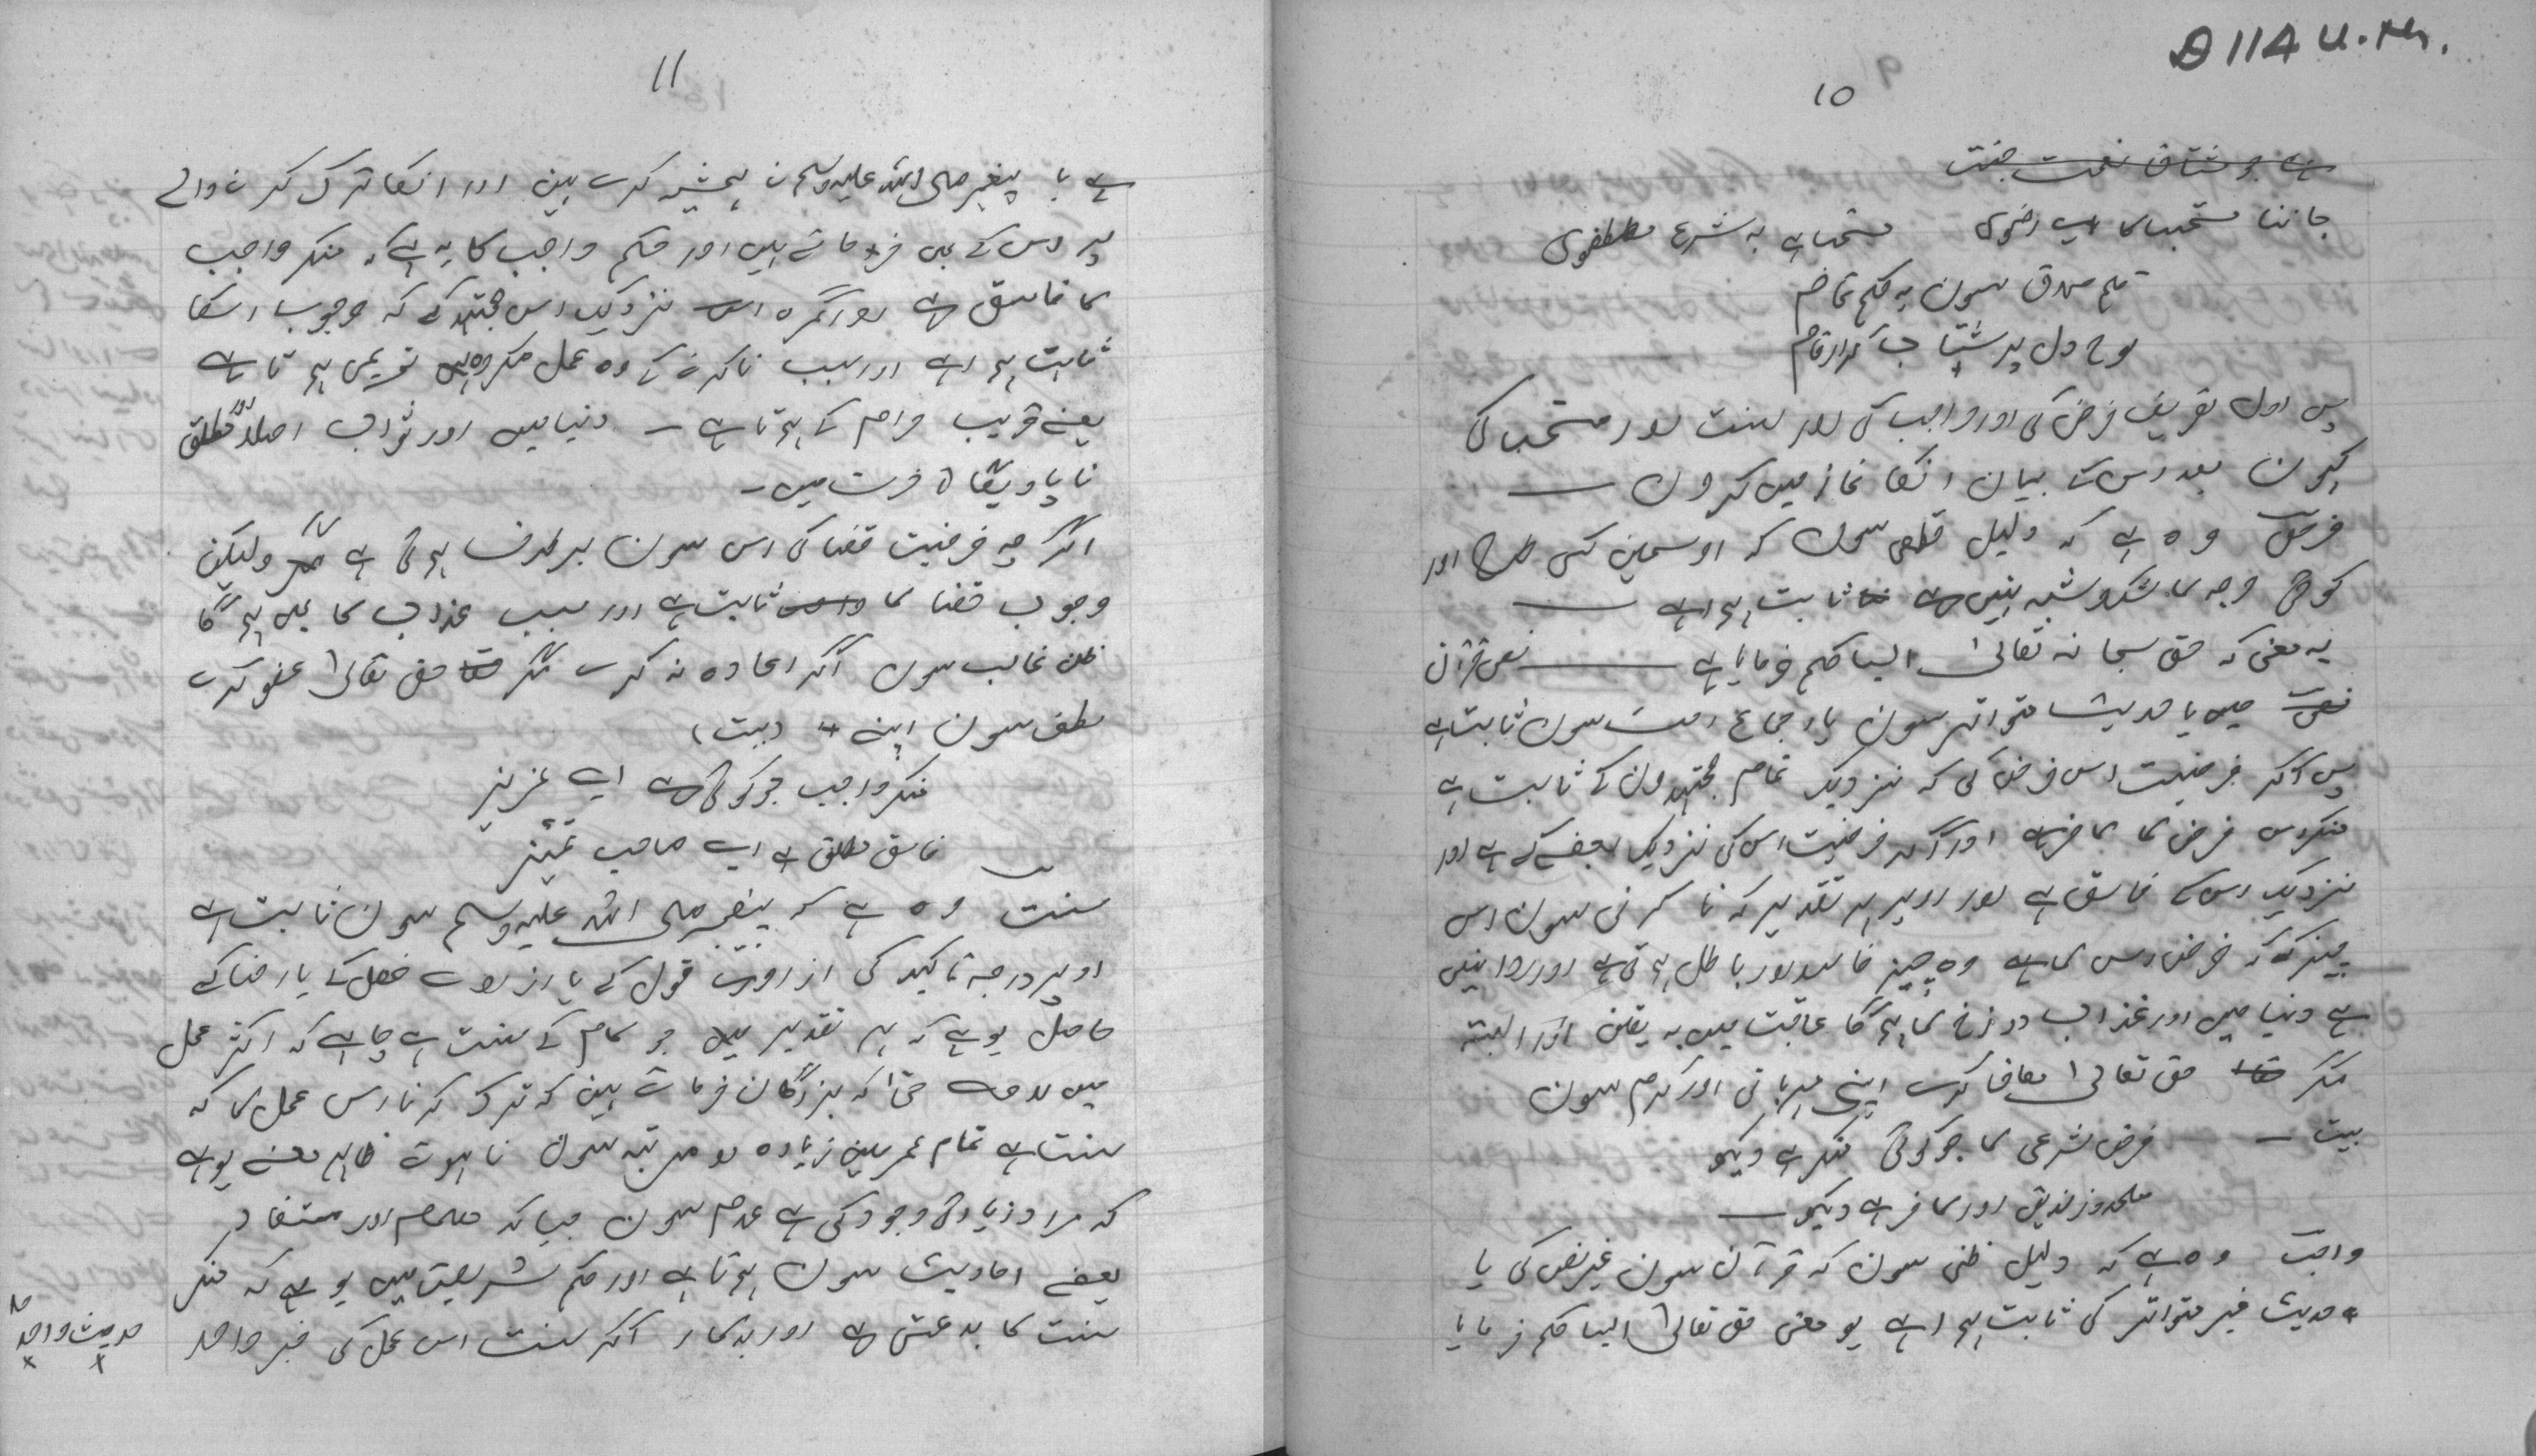 D 114 U.M.
10
ہے جو مشتاق نعمت جنت
جاننا مستحب کا اے رضوی مستحب ہے بہ شرع مصطفوی
قلم صدق سون یہ حکم تمام
لوح دل پر شتاب کر ارقام
پس اول تعریف فرض کی اور واجب کی اور سنت اور مستحب کی
کہون بعد اس کے بیان انکا نماز میں کرون
فرض وہ ہے کہ دلیل قطعی سون کہ اوسمین کسی طرح اور
کوئی وجہ کا شک و شبہ نہیں ہے ثابت ہوا ہے
یہ معنی کہ حق سبحانہ تعالیٰ ایسا حکم فرمایا ہے نص قرآن
میں یا حدیث متواتر سون یا اجماع امت سون ثابت ہے
پس اگر فرضیت اس فرض کی کہ نزدیک تمام مجتہدون کے ثابت ہے
منکر اس فرض کا کافر ہے اور اگر فرضیت اس کی نزدیک بعضے کے ہے اور
نزدیک اس کے فاسق ہے اور اوپر ہر تقدیر کہ نا کرنی سون اس
چیز کے کہ فرض اس کا ہے وہ چیز فاسد اور باطل ہوتی ہے اور روا نہیں
ہے دنیا میں اور عذاب دوزخ کا ہوگا عاقبت میں بہ یقین اور البتہ
مگر حق تعالیٰ معاف کرے اپنی مہربانی اور کرم سون
بیت ـ فرض شرعی کا جو کوئی منکر ہے دیکھو
ملحد و زندیق اور کافر ہے دیکھو
واجب وہ ہے کہ دلیل ظنی سون کہ قرآن سون غیر نص کی یا
حدیث غیر متواتر کی ثابت ہوا ہے یو معنی حق تعالیٰ ایسا حکم فرمایا
11
ہے یا پیغمبر صلی اللہ علیہ وسلم نے ہمیشہ کرے ہین اور انکا ترک کرنے والے
پر اس کے بھی فرماتے ہیں اور حکم واجب کا یہ ہے کہ منکر واجب
کا فاسق ہے اور گمراہ نزدیک اس مجتہد کے کہ وجوب اسکا
ثابت ہوا ہے اور سبب نا کرنے کے وہ عمل مکروہ تحریمی ہوتا ہے
یعنے قریب حرام کے ہوتا ہے ـ دنیا میں اور ثواب اصلا و مطلق
نا پاویگا آخرت میں ـ
اگرچہ فرضیت قضا کی اس سون برطرف ہوئی ہے ولیکن
وجوب قضا کا ثابت ہے اور سبب عذاب کا بھی ہوگا
ظن غالب سون اگر اعادہ نہ کرے مگر حق تعالیٰ عفو کرے
لطف سون اپنے (بیت)
منکر واجب جو کوئی ہے اے عزیز
فاسق مطلق ہے اے صاحب تمیز
سنت وہ ہے کہ پیغمبر صلی اللہ علیہ وسلم سون ثابت ہے
اوپر درجہ تاکید کی از روے قول کے یا از روے فعل کے یا رضا کے
حاصل یو ہے کہ ہر تقدیر میں جو کام کے سنت ہے چاہے کہ اکثر عمل
میں حتا کہ بزرگان فرماتے ہین کہ ترک کرنا اس عمل کا کہ
سنت ہے تمام عمر مین زیادہ دو مرتبہ سون نا ہووے ظاہر معنے یو ہے
کہ مراد زیادتی وجود کی ہے عدم سون جیسا کہ معلوم اور مستفاد
بعضے احادیث سون ہوتا ہے اور حکم شریعت میں یو ہے کہ منکر
سنت کا بدعتی ہے اور بدکار اگر سنت اس عمل کی خبر واحد
حدیث واحد